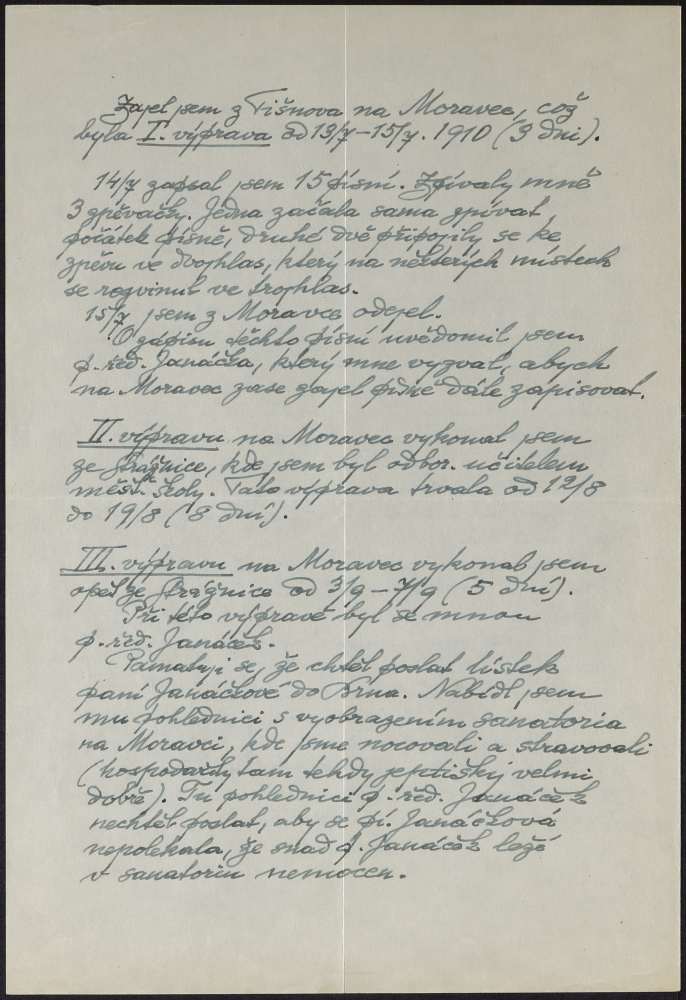 Zajel jsem z Tišnova na Moravec, což
byla I. výprava od 13/7–15/7. 1910 (3 dni).
14/7 zapsal jsem 15 písní. Zpívaly mně
3 zpěvačky. Jedna začala sama zpívat
počátek písně, druhé dvě připojily se ke
zpěvu ve dvojhlas, který na některých místech
se rozvinul ve trojhlas.
15/7 jsem z Moravce odejel.
O zápisu těchto písní uvědomil jsem
p. řed. Janáčka, který mne vyzval, abych
na Moravec zase zajel písně dále zapisovat.
II. výpravu na Moravec vykonal jsem
ze Strážnice, kde jsem byl odbor. učitelem
měšť. školy. Tato výprava trvala od 12/8
do 19/8 (8 dní).
III. výpravu na Moravec vykonal jsem
opět ze Strážnice od 3/9–7/9 (5 dní).
Při této výpravě byl se mnou
p. řed. Janáček.
Pamatuji se, že chtěl poslat lístek
paní Janáčkové do Brna. Nabídl jsem
mu pohlednici s vyobrazením sanatoria
na Moravci, kde jsme nocovali a stravovali
(hospodařily tam tehdy jeptišky velmi
dobře). Tu pohlednici p. řed. Janáček
nechtěl poslat, aby se pí. Janáčková
nepolekala, že snad p. Janáček leží
v sanatoriu nemocen.